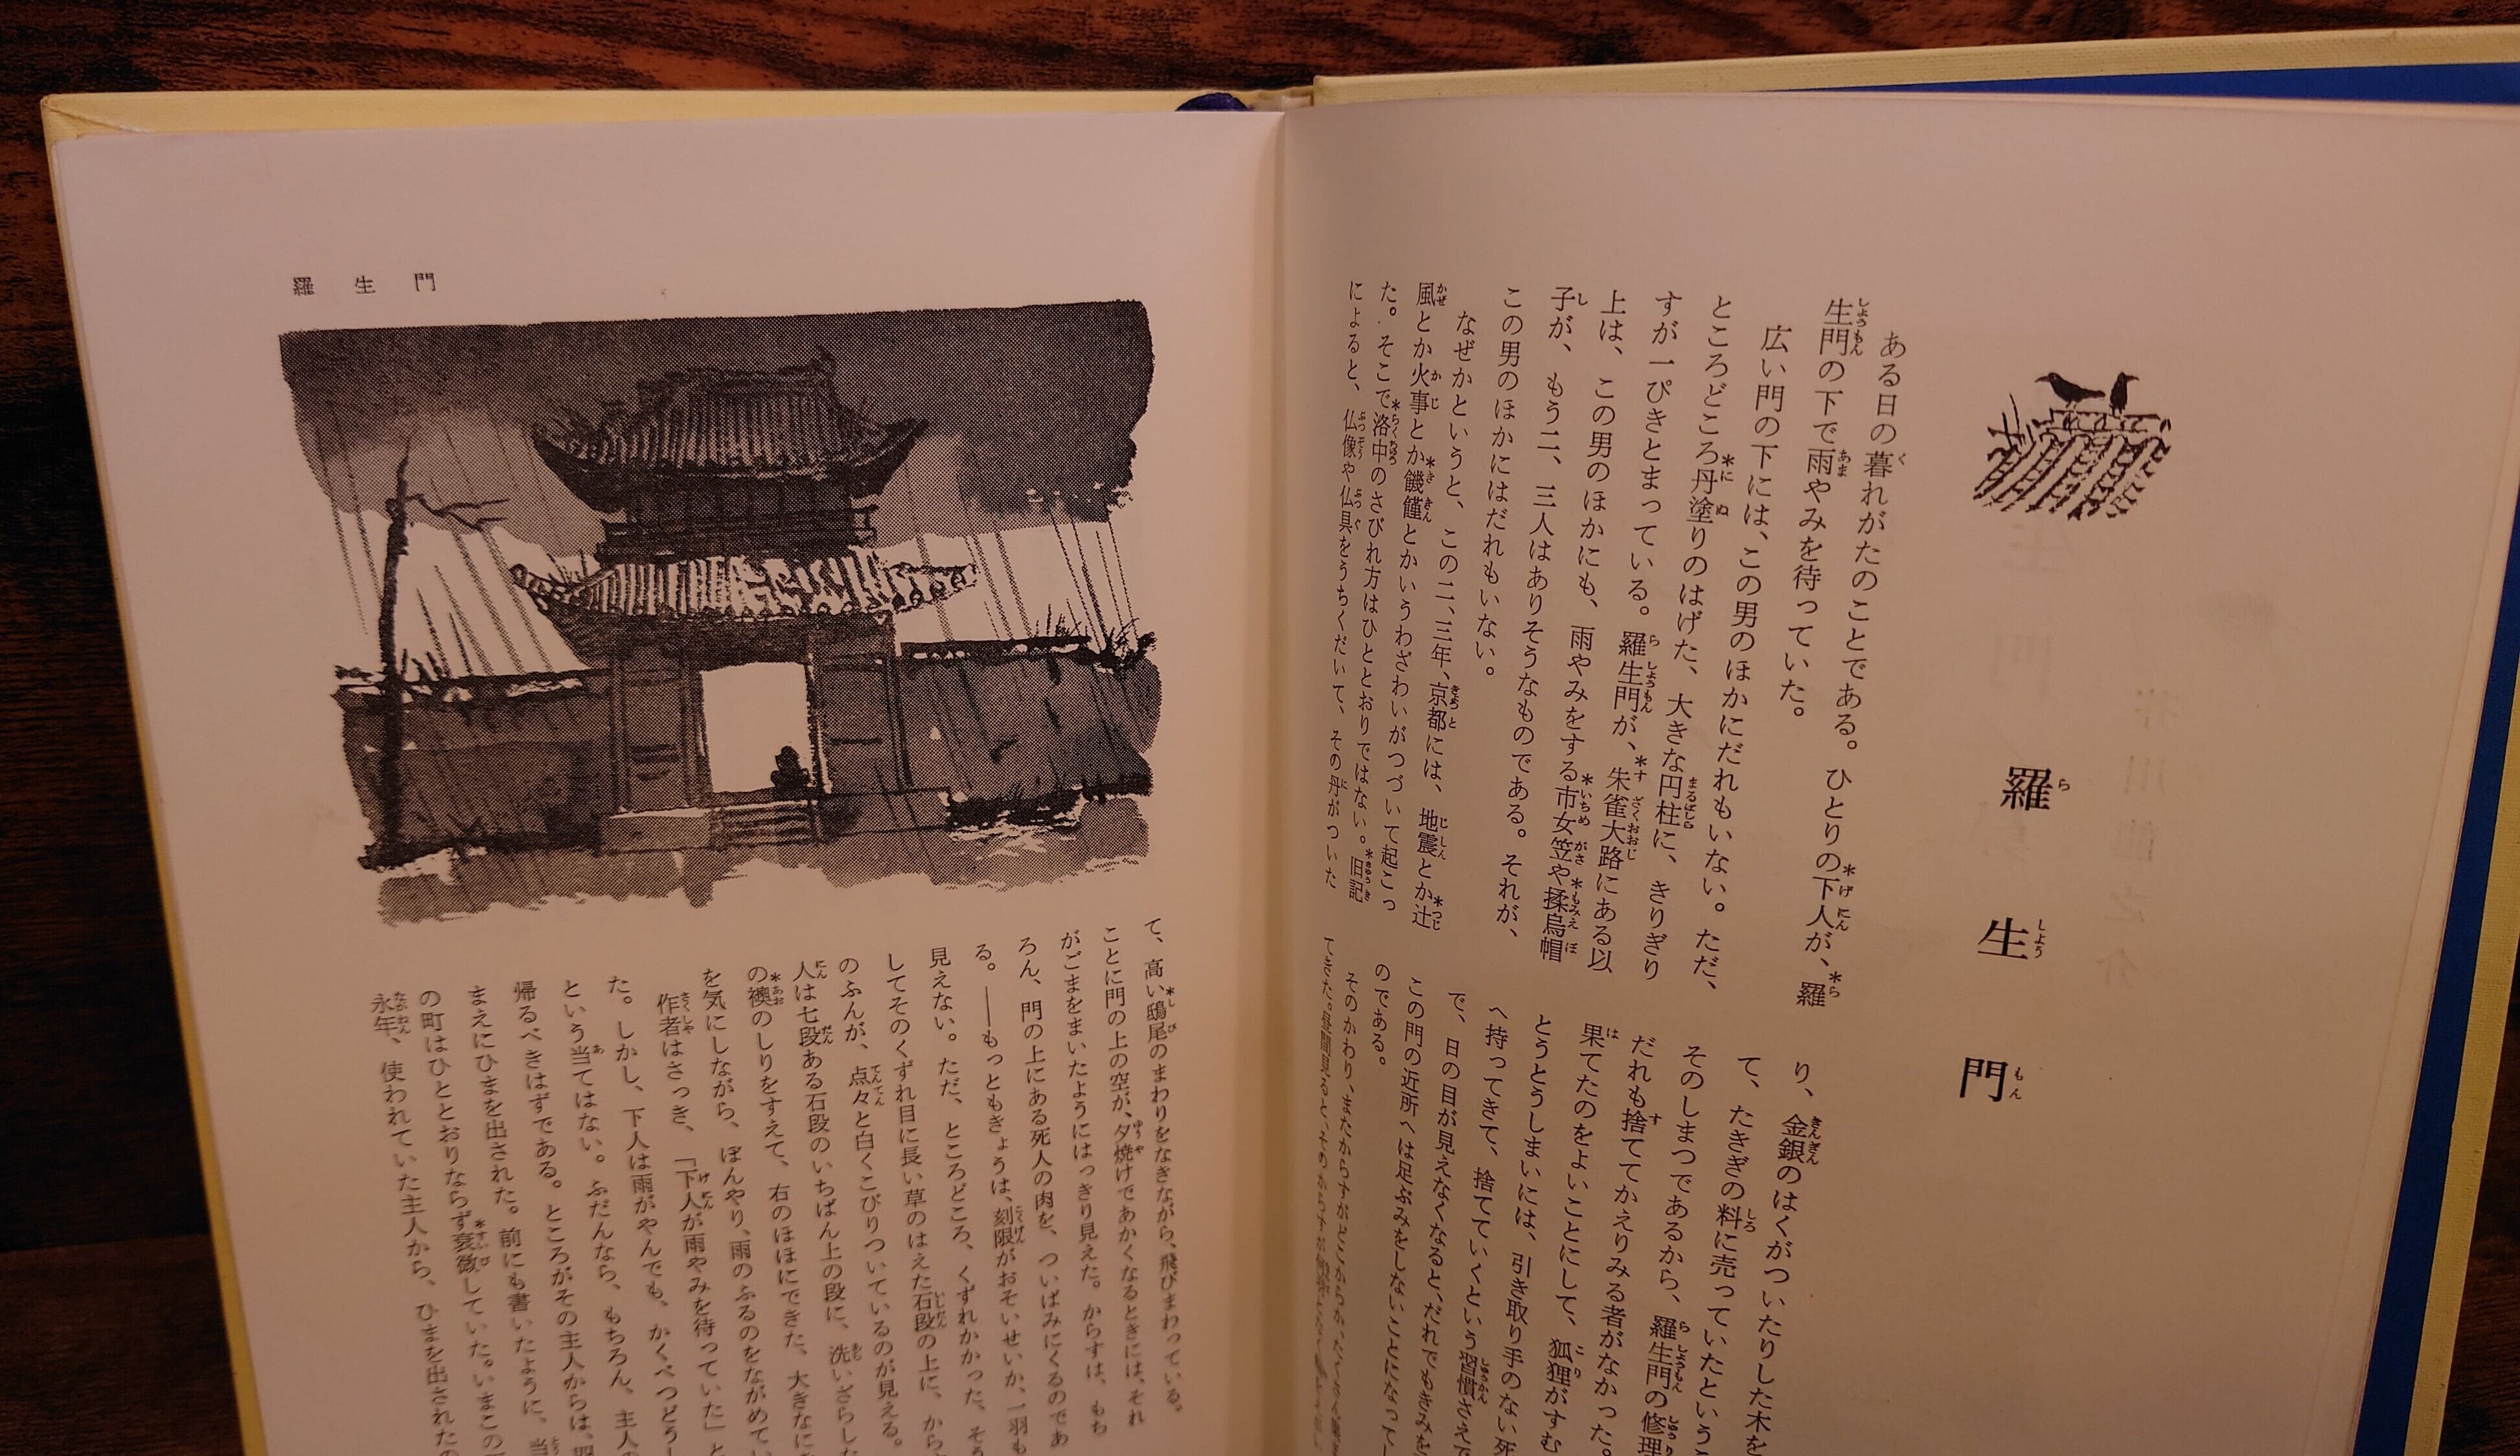 羅生門
ある日の暮れがたのことである。ひとりの下人が、羅
生門の下で雨やみを待っていた。
広い門の下には、この男のほかにだれもいない。ただ、
ところどころ丹塗りのはげた、大きな円柱に、きりぎり
すが一ぴきとまっている。羅生門が、朱雀大路にある以
上は、この男のほかにも、雨やみをする市女笠や揉烏帽
子が、もう二、三人はありそうなものである。それが、
この男のほかにはだれもいない。
なぜかというと、この二、三年、京都には、地震とか辻
風とか火事とか饑饉とかいうわざわいがつづいて起こっ
た。そこで洛中のさびれ方はひととおりではない。旧記
によると、仏像や仏具をうちくだいて、その丹がついた
り、金銀のはくがついたりした木を
て、たきぎの料に売っていたという
そのしまつであるから、羅生門の修理
だれも捨ててかえりみる者がなかった。
果てたのをよいことにして、狐狸がすむ
とうとうしまいには、引き取り手のない死
へ持ってきて、捨てていくという習慣さえで
で、日の目が見えなくなると、だれでもきみを
この門の近所へは足ぶみをしないことになって
のである。
羅生門
て、高い鴟尾のまわりをなきながら、飛びまわっている。
ことに門の上の空が、夕焼けであかくなるときには、それ
がごまをまいたようにはっきり見えた。からすは、もち
ろん、門の上にある死人の肉を、ついばみにくるのであ
る。――もっともきょうは、刻限がおそいせいか、一羽も
見えない。ただ、ところどころ、くずれかかった、そう
してそのくずれ目に長い草のはえた石段の上に、から
のふんが、点々と白くこびりついているのが見える。
人は七段ある石段のいちばん上の段に、洗いざらした
の襖のしりをすえて、右のほほにできた、大きなに
を気にしながら、ぼんやり、雨のふるのをながめてい
作者はさっき、「下人が雨やみを待っていた」と
た。しかし、下人は雨がやんでも、かくべつどうし
という当てはない。ふだんなら、もちろん、主人の
帰るべきはずである。ところがその主人からは、四
まえにひまを出された。前にも書いたように、当
の町はひととおりならず衰微していた。いまこの
永年、使われていた主人から、ひまを出されたの